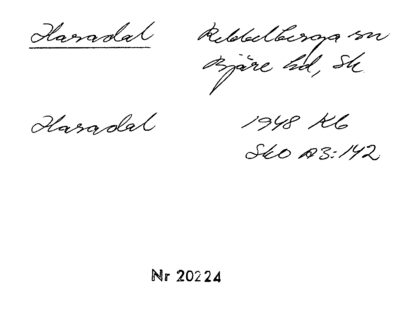 Haradal Rebbelberga sn
Bjäre hd, Sk
Haradal 1948 Kb
SkO A3:142
Nr 20224